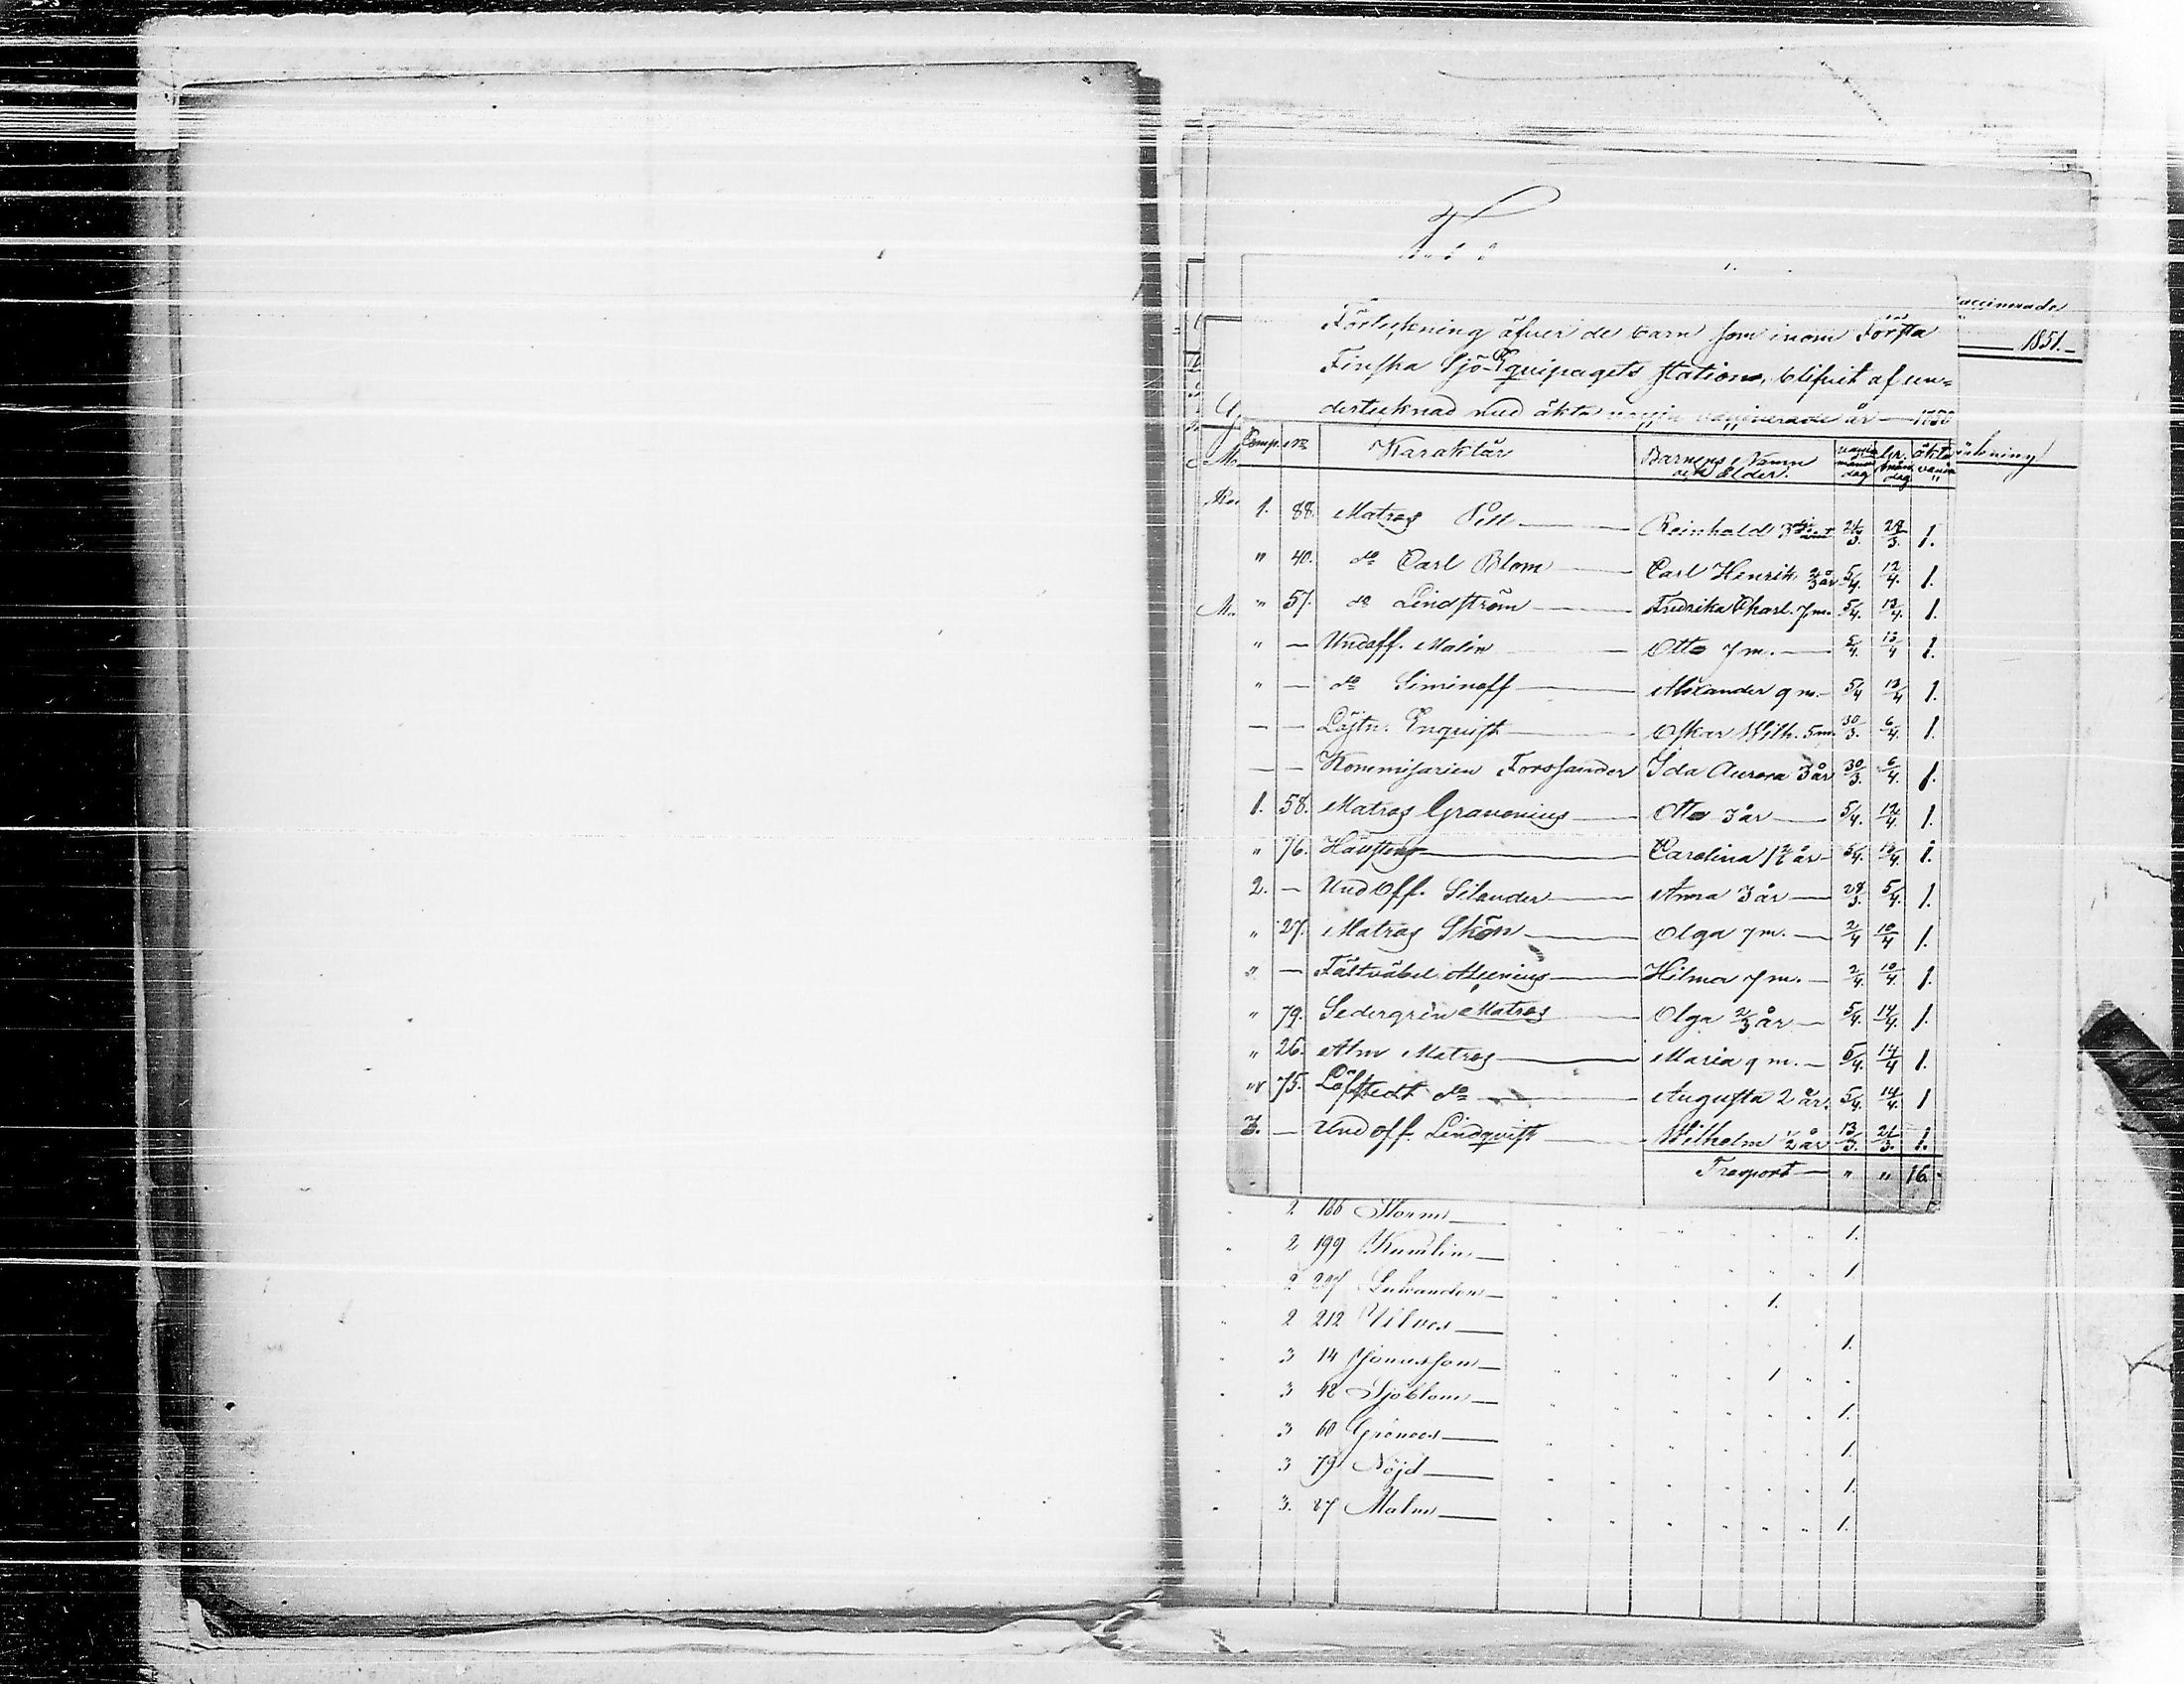 Förteckning öfver de barn som inom Första
Finska Sjö-Equipagets station, blifvit af un-
dertecknad med äkta vaccin vaccinerade år — 1850
Comp. No Karaktär Barnens Namn och Ålder.
1. 88. Matros Pell — Reinhold
" 40. do Carl Blom — Carl Henrik 2/3 år 5/4. 12/4. 1.
" 57. do Lindström — Fredrika Charl. 7 m. 5/4. 13/4. 1.
" — Undoff. Malin — Otto 7 m. — 5/4. 13/4 1.
" — do Siminoff — Alexander 9 m. — 5/4 13/4 1.
— — Löjtn. Enqvist — Oskar Wilh. 5 m. 30/3. 6/4. 1.
— — Kommisarien Forssander Ida Aurora 3 år 30/3. 6/4. 1.
1. 58. Matros Gravonius — Otto 3 år — 5/4. 12/4. 1.
" 76. — Carolina 1 1/2 år — 5/4. 13/4. 1.
2. — Und Off. Silander — Anna 3 år — 28/3. 5/4. 1.
" 27. Matros Skön — Olga 7 m. — 2/4 10/4 1.
" — Fältväbel — Hilma 7 m. — 2/4. 10/4. 1.
" 79. Sedergrén Matros — Olga 2/3 år — 5/4. 14/4. 1.
" 26. Alm Matros — Maria 9 m. — 5/4. 14/4 1.
" 75. Löfstedt do — Augusta 2 år. 5/4. 14/4. 1
3. — Und off. Lindqvist — Wilhelm 1/2 år 13/3. 21/3. 1.
Transport — " " 16.
1851.
2 166 Storm — 1.
2 199 Kumlin — 1.
2 207 — 1.
2 212 Ulves — 1.
3 14 Jonasson — 1
3 48 Sjöblom — 1.
3 60 Grönroos — 1.
3 79 Nöjd — 1.
3. 87 Malm — 1.